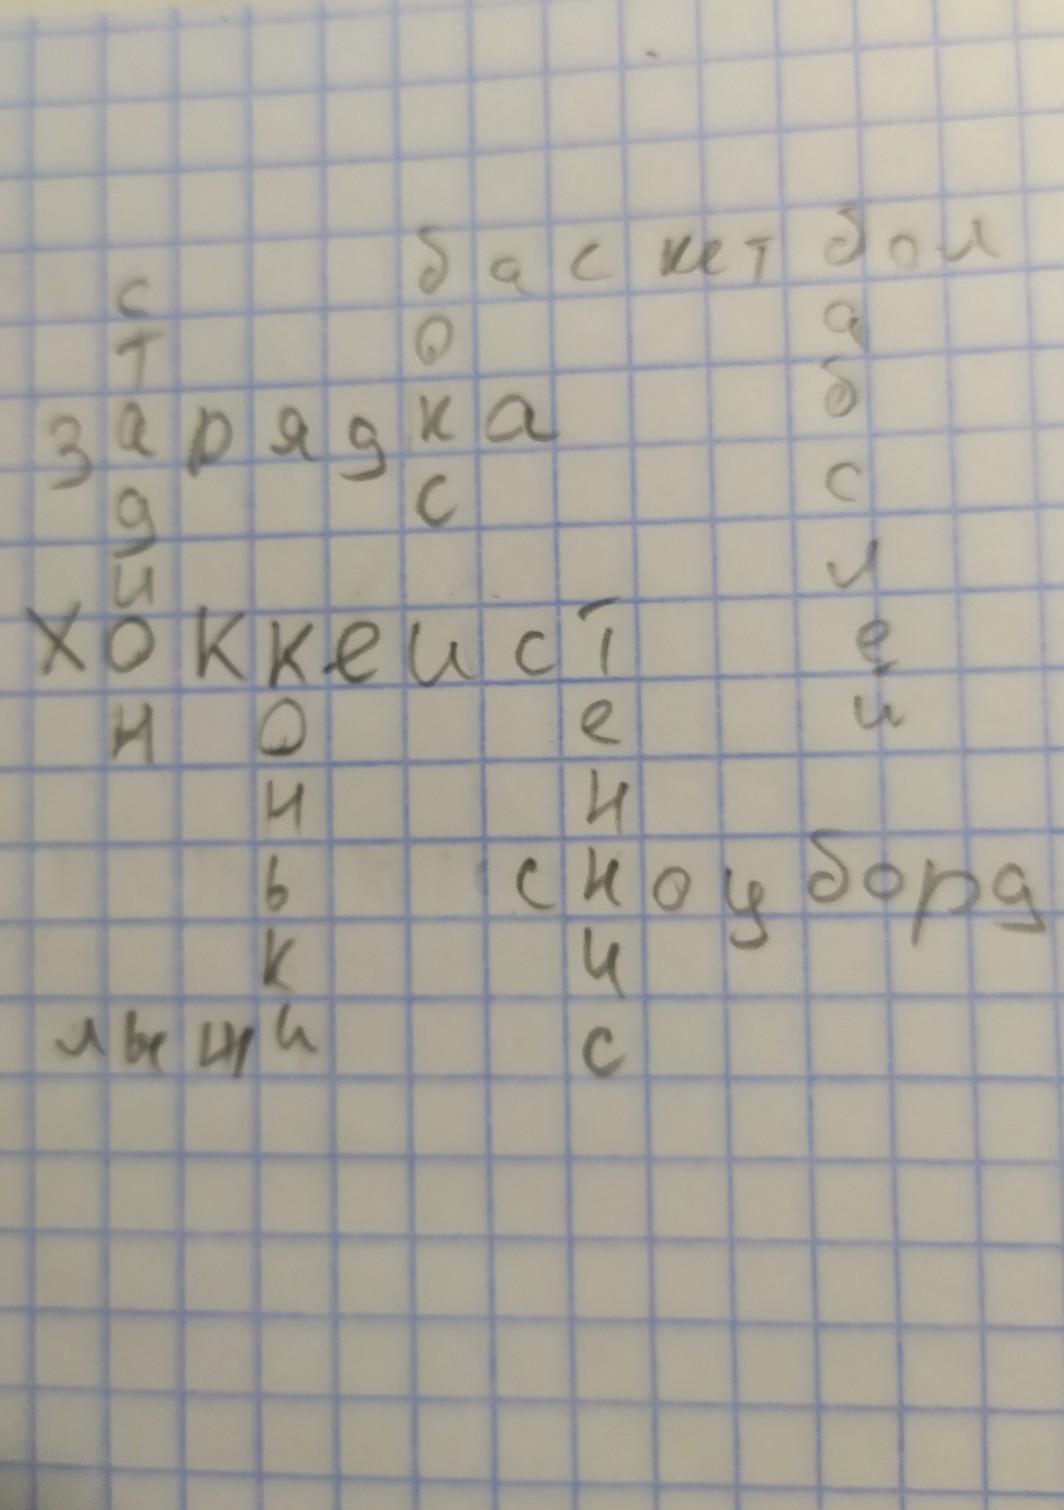 баскетбол
стадион
бокс
бабслеи
зарядка
хоккеист
коньки
теннис
сноуборд
лыжи